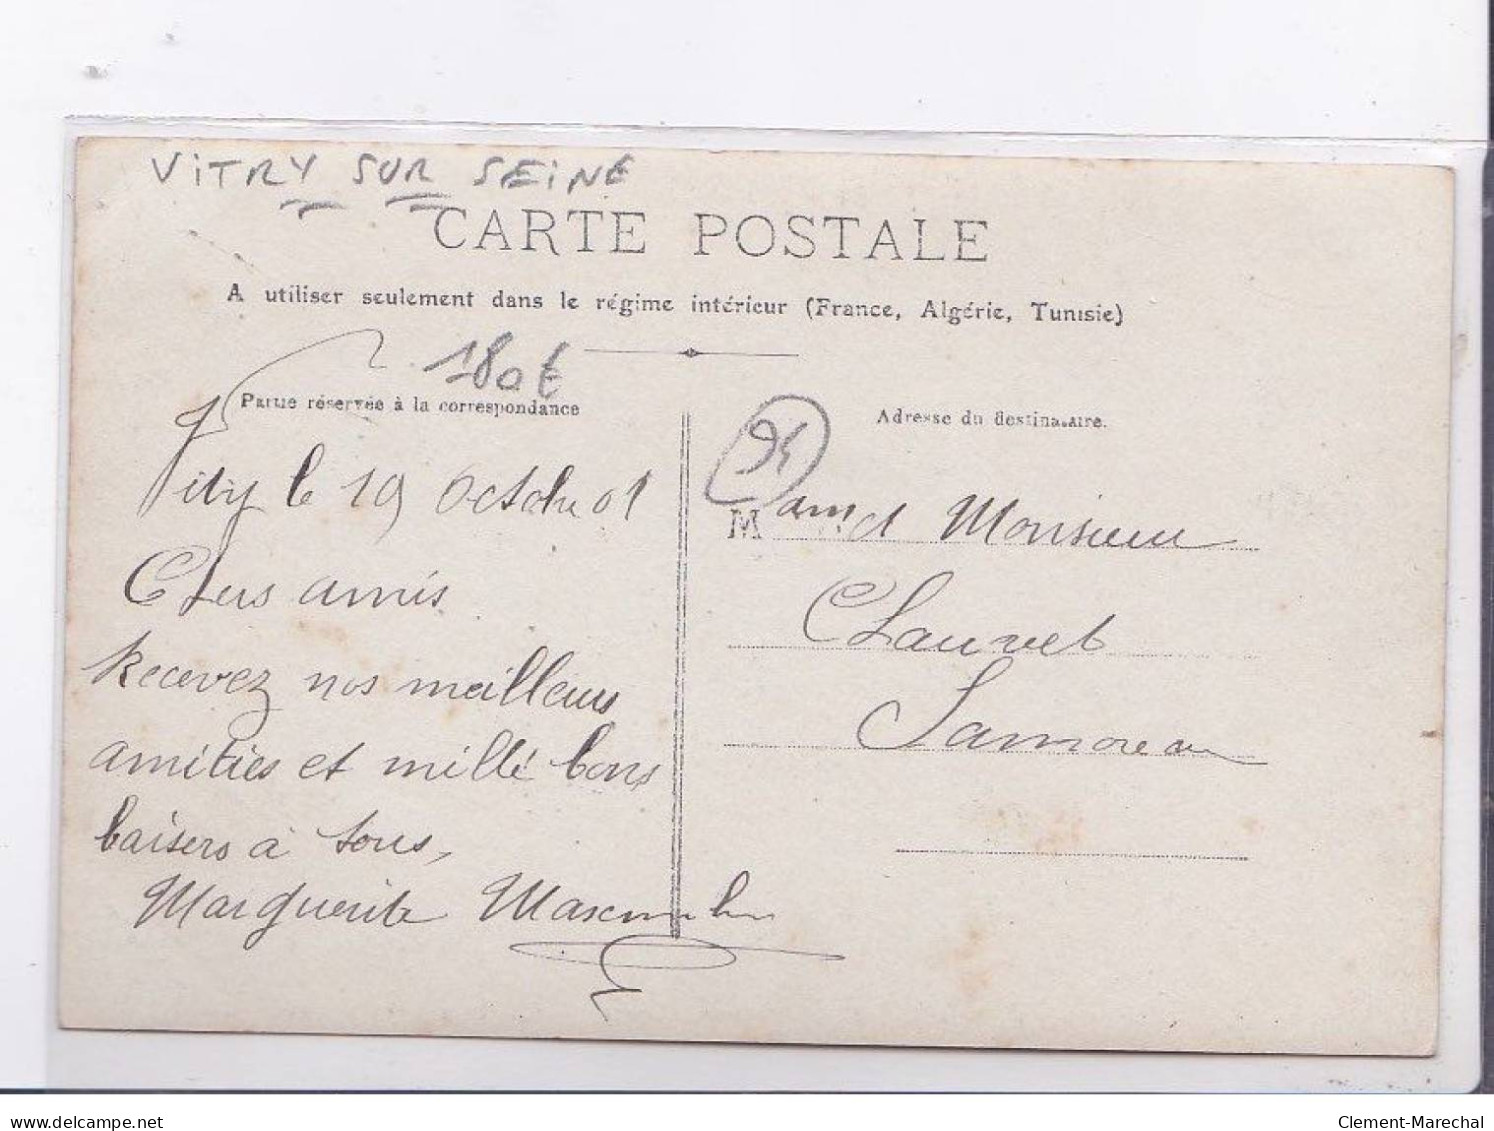 VITRY SUR SEINE
CARTE POSTALE
A utiliser seulement dans le régime intérieur (France, Algérie, Tunisie)
180€
Partie réservée à la correspondance
Vitry le 19 Octobre 01
Chers amis
Recevez nos meilleurs
amitiés et mille bons
baisers à tous,
Marguerite
94
Adresse du destinataire.
Mam et Monsieur
Chauvet
Samoreau
delcampe.net
Clement-Marechal